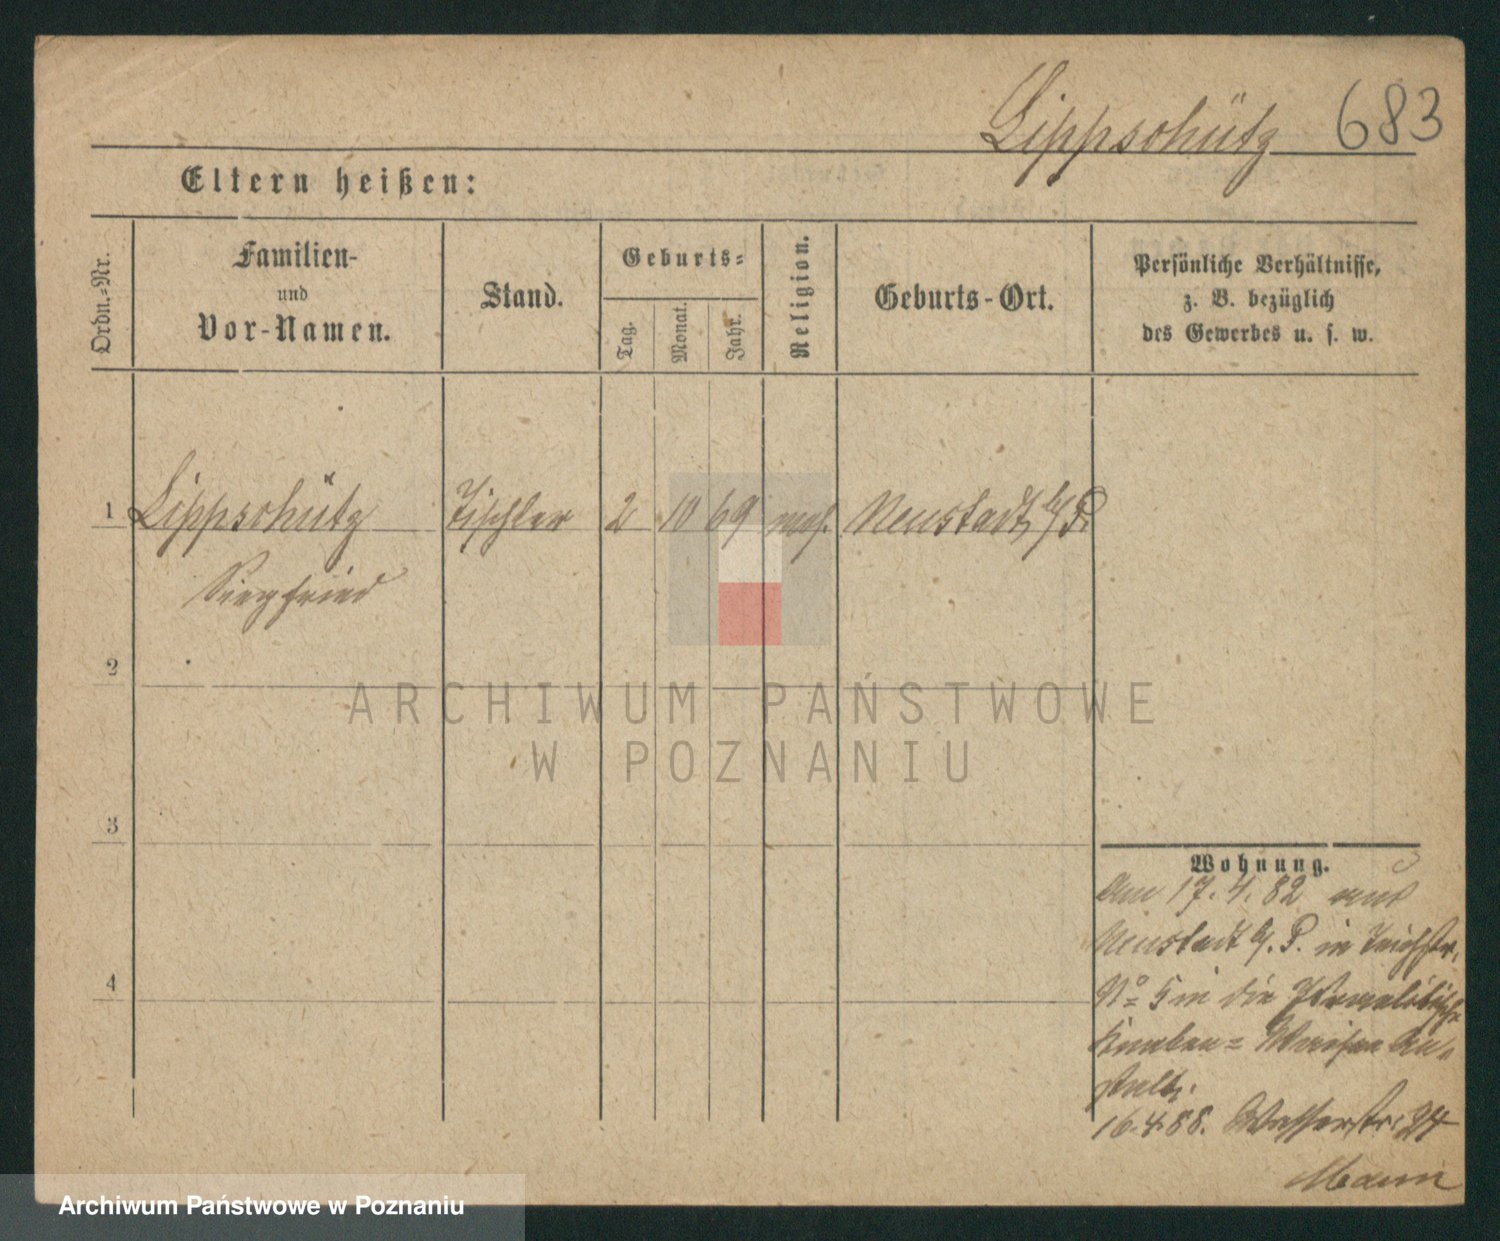 Lippschütz 683
Eltern heißen:
Ordn.-Nr.
Familien-
und
Vor-Namen.
Stand.
Geburts-
Tag.
Monat.
Jahr.
Religion.
Geburts-Ort.
Persönliche Verhältnisse,
z. B. bezüglich
des Gewerbes u. s. w.
1 Lippschütz Tischler 2 10 69 mos. Neustadt b/P.
Siegfried
2
3
4
Wohnung.
Am 17. 4. 82 aus
Neustadt b/. P. in Teichstr.
No 5 in die Israelitische
Knaben= Waisen An-
stalt.
16. 4. 88. Wasserstr. 24
Mann
ARCHIWUM PAŃSTWOWE
W POZNANIU
Archiwum Państwowe w Poznaniu